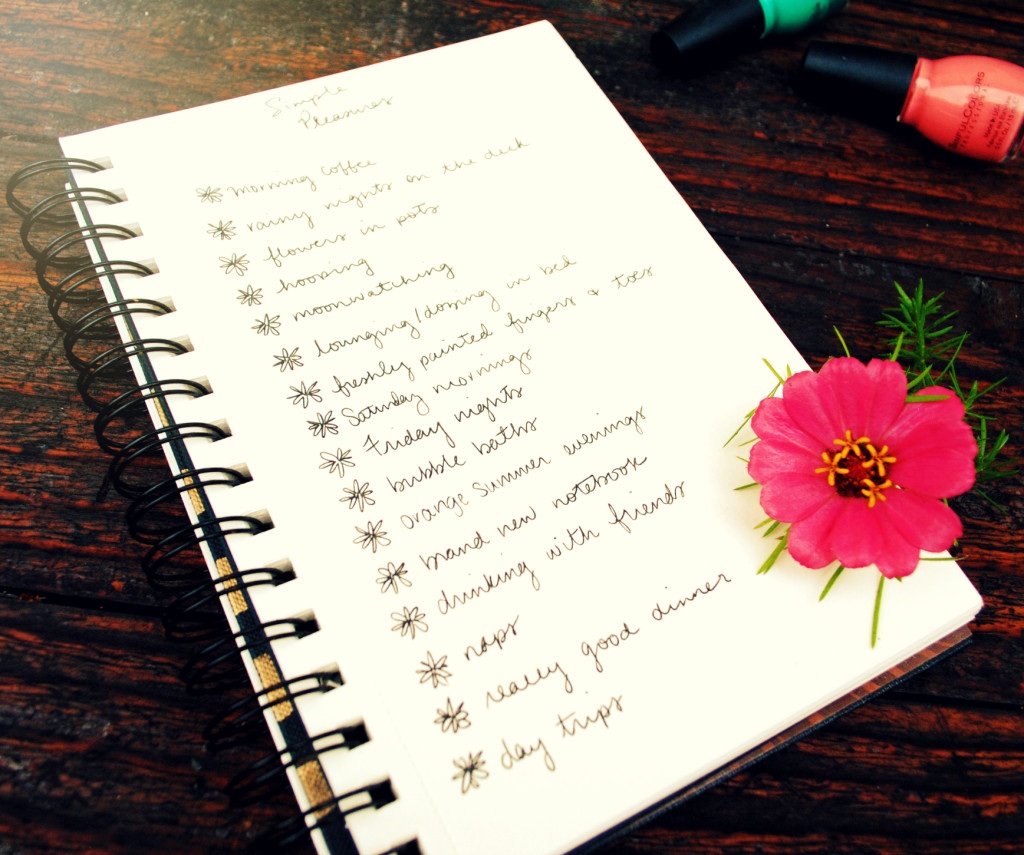 Simple
Pleasures
morning coffee
rainy nights on the deck
flowers in pots
hooping
moonwatching
lounging/dozing in bed
freshly painted fingers & toes
Saturday mornings
Friday nights
bubble baths
orange summer evenings
brand new notebook
drinking with friends
naps
really good dinner
day trips